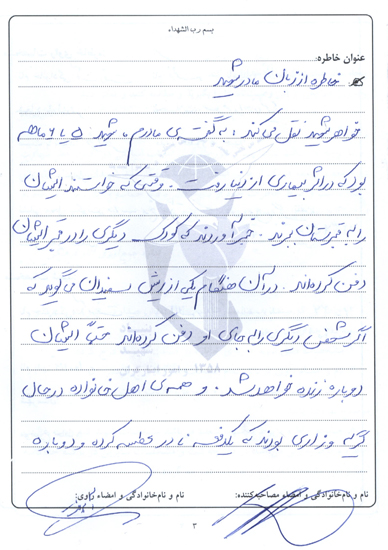 بسم رب الشهداء
عنوان خاطره:
خاطره از زبان مادر شهید
خواهر شهید نقل می‌کند: به گفته‌ی مادرم، شهید ۵ یا ۶ ماهه
بود که در اثر بیماری از دنیا رفت. وقتی که خواستند ایشان
را به قبرستان ببرند. خبر آوردند که کودک دیگری را در قبر ایشان
دفن کرده‌اند. در آن هنگام یکی از ریش سفیدان می‌گوید که
اگر شخص دیگری را به جای او دفن کرده‌اند حتماً ایشان
دوباره زنده خواهد شد. و همه‌ی اهل خانواده در حال
گریه و زاری بودند که یکدفعه نادر عطسه کرده و دوباره
نام و نام‌خانوادگی و امضاء مصاحبه‌کننده: نام و نام‌خانوادگی و امضاء راوی:
۳
۱۳۵۸